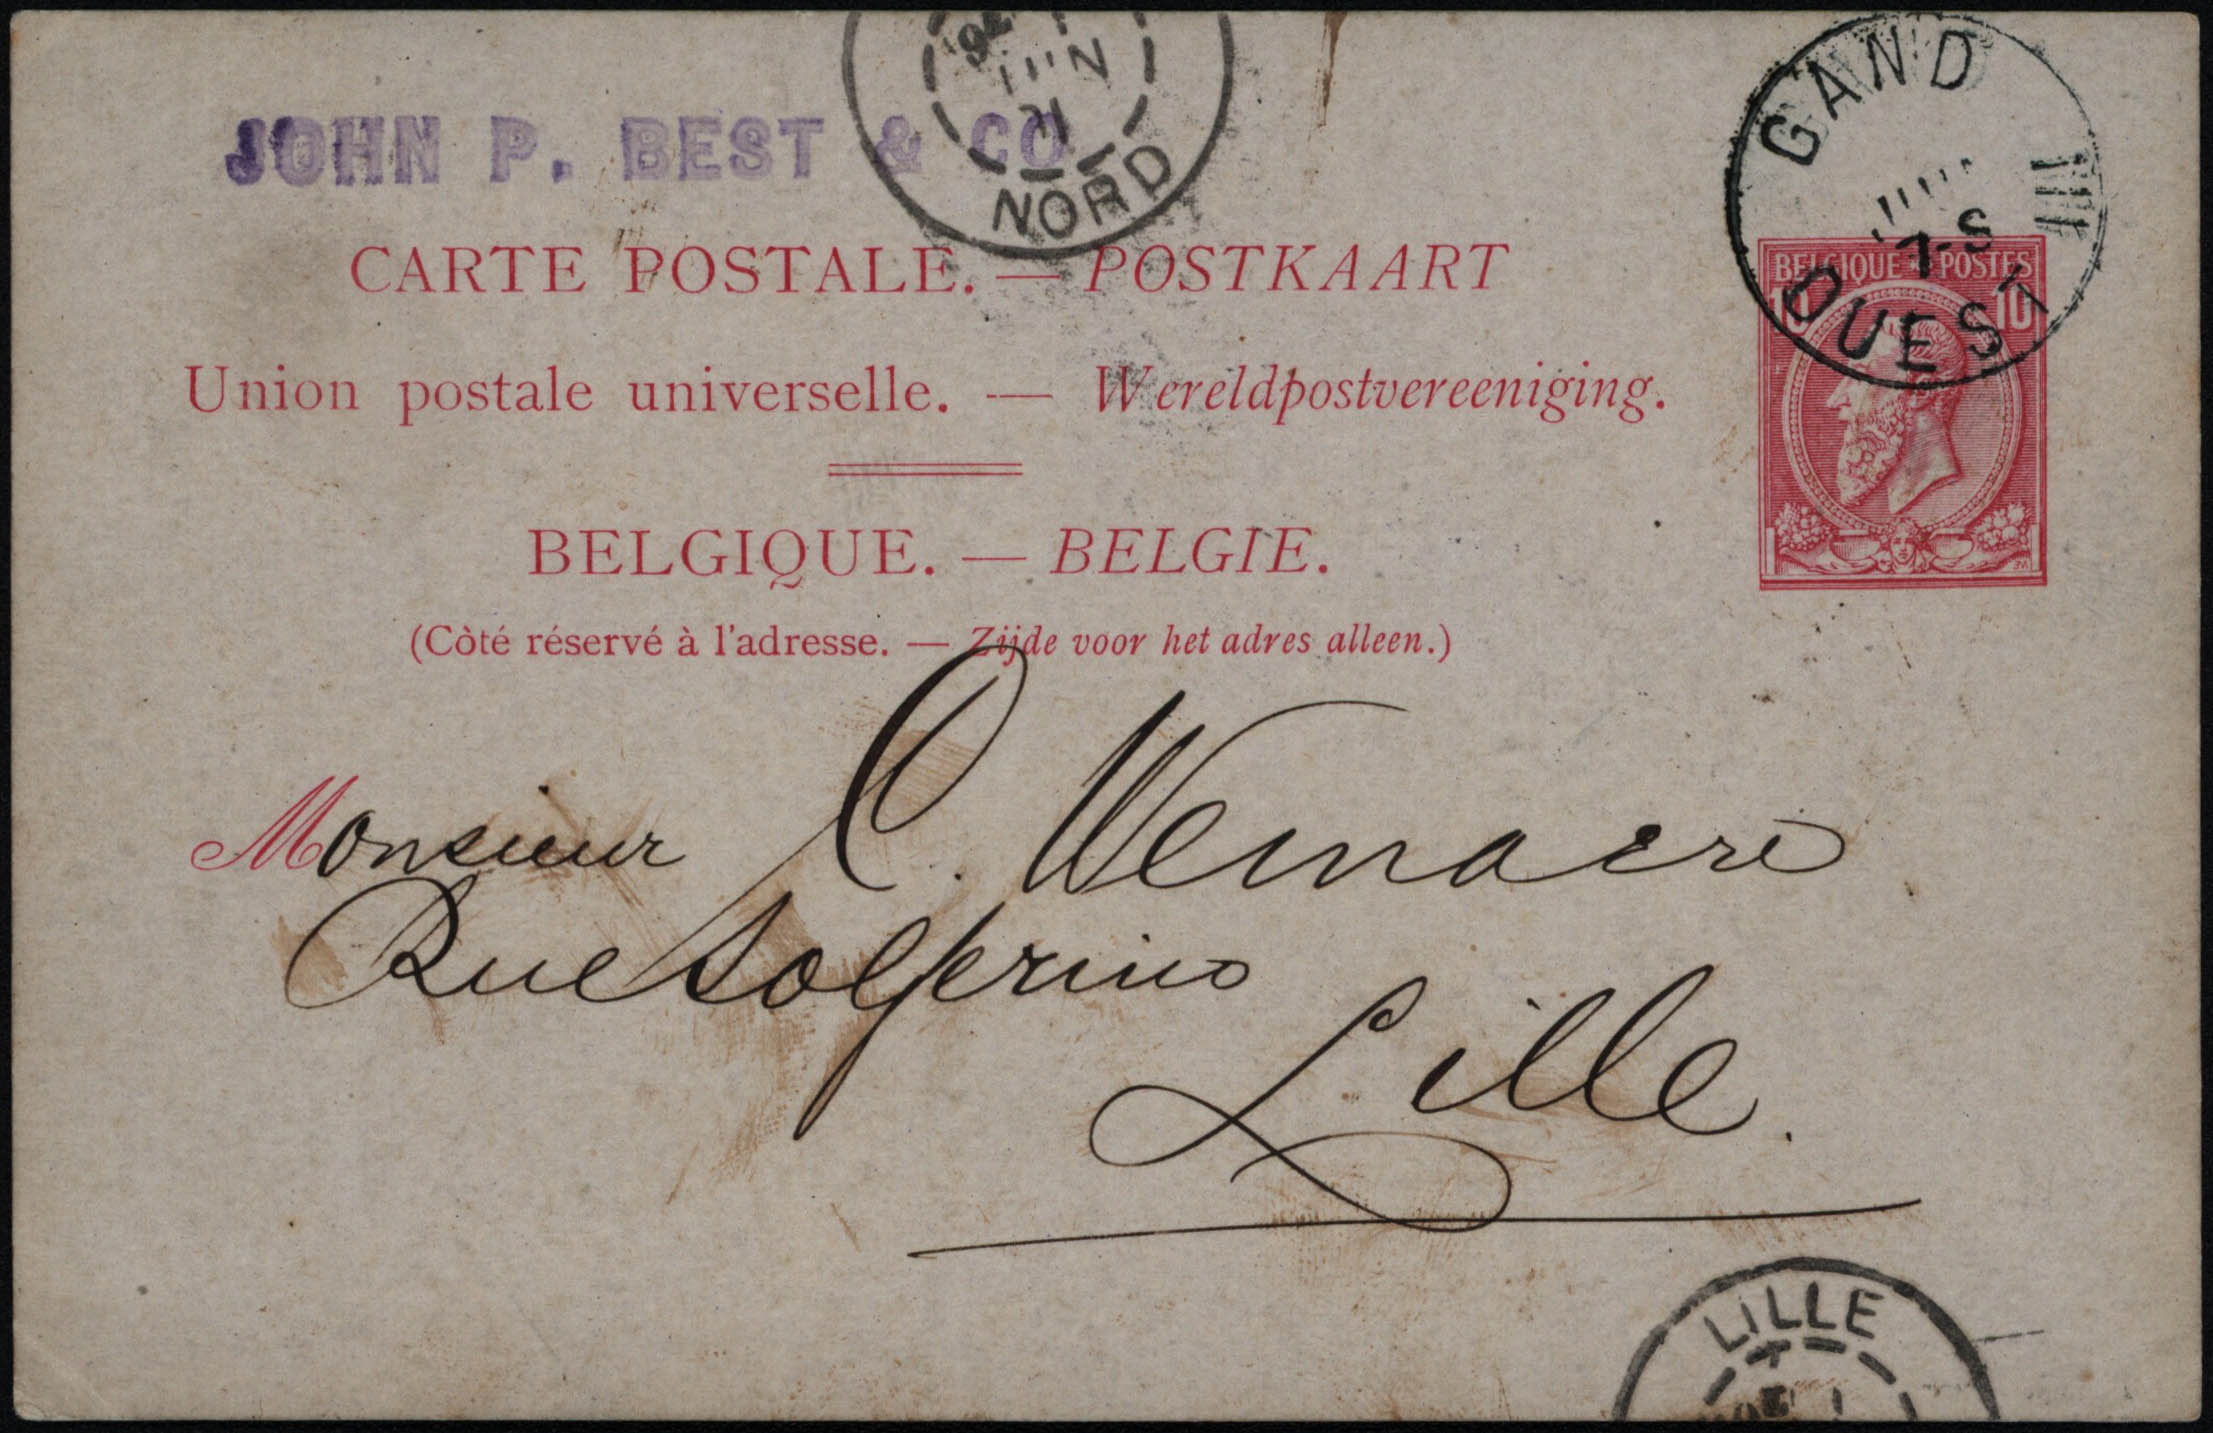 JOHN P. BEST & CO
JUIN
NORD
GAND
7-S
OUEST
BELGIQUE POSTES
10 10
CARTE POSTALE. — POSTKAART
Union postale universelle. — Wereldpostvereeniging.
BELGIQUE. — BELGIE.
(Côté réservé à l'adresse. — Zijde voor het adres alleen.)
Monsieur C. Wemaere
Rue Solferino
Lille.
LILLE